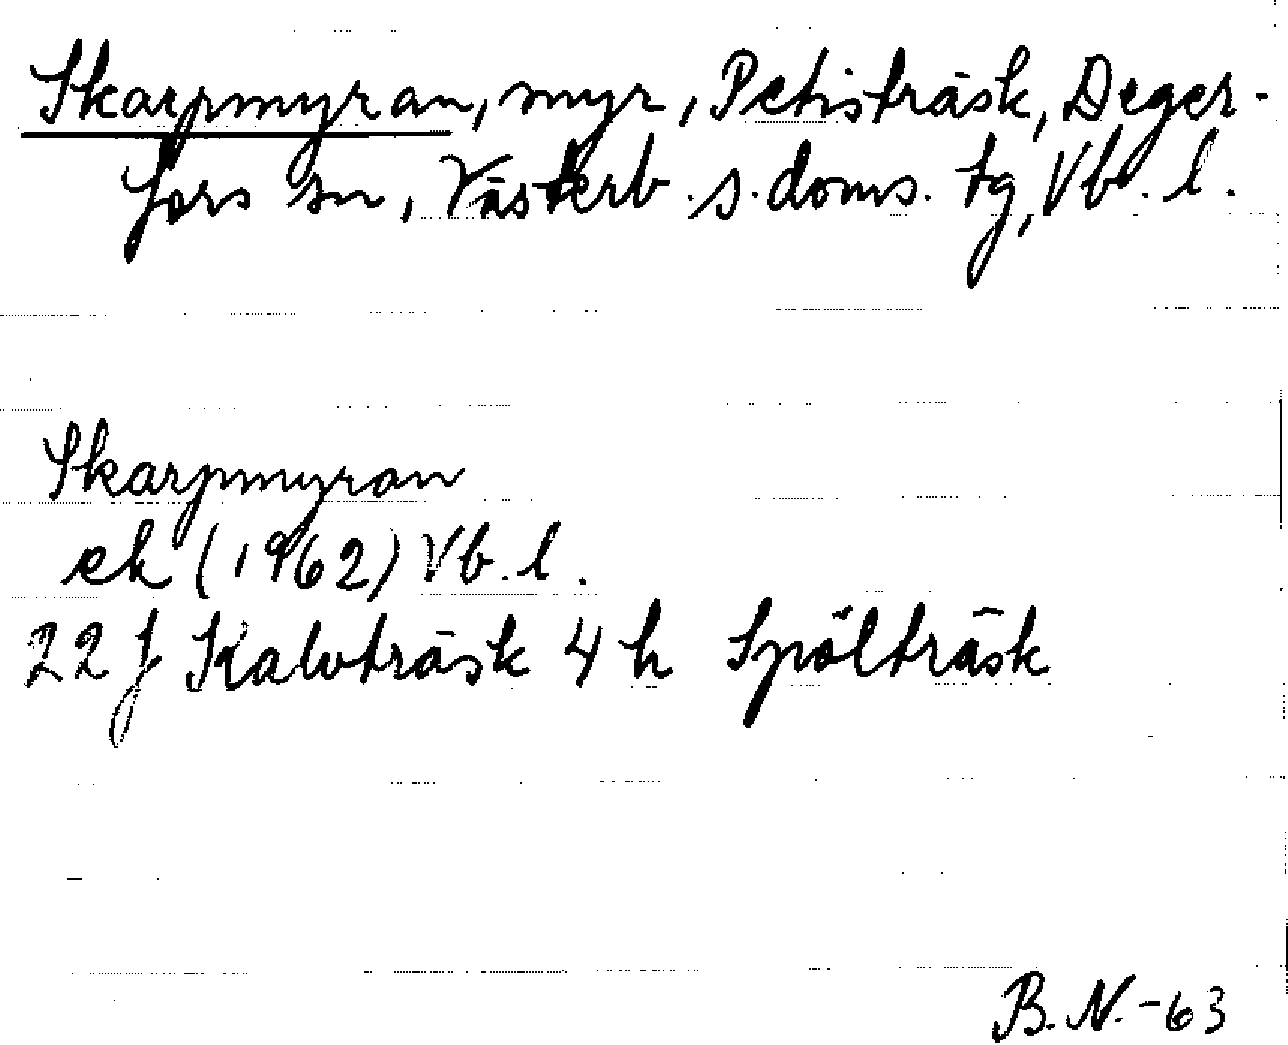 Skarpmyran, myr, Petisträsk, Deger-
fors sn, Västerb. s. doms. tg, Vb. l.
Skarpmyran
ek (1962) Vb. l.
22 J Kalvträsk 4 h Spölträsk
B.N. -63